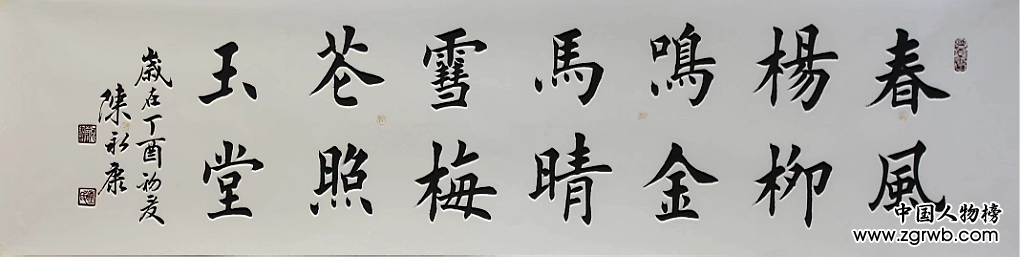 春風
楊柳
鳴金
馬晴
雪梅
花照
玉堂
歲在丁酉初夏
陳永康
中国人物榜
www.zgrwb.com